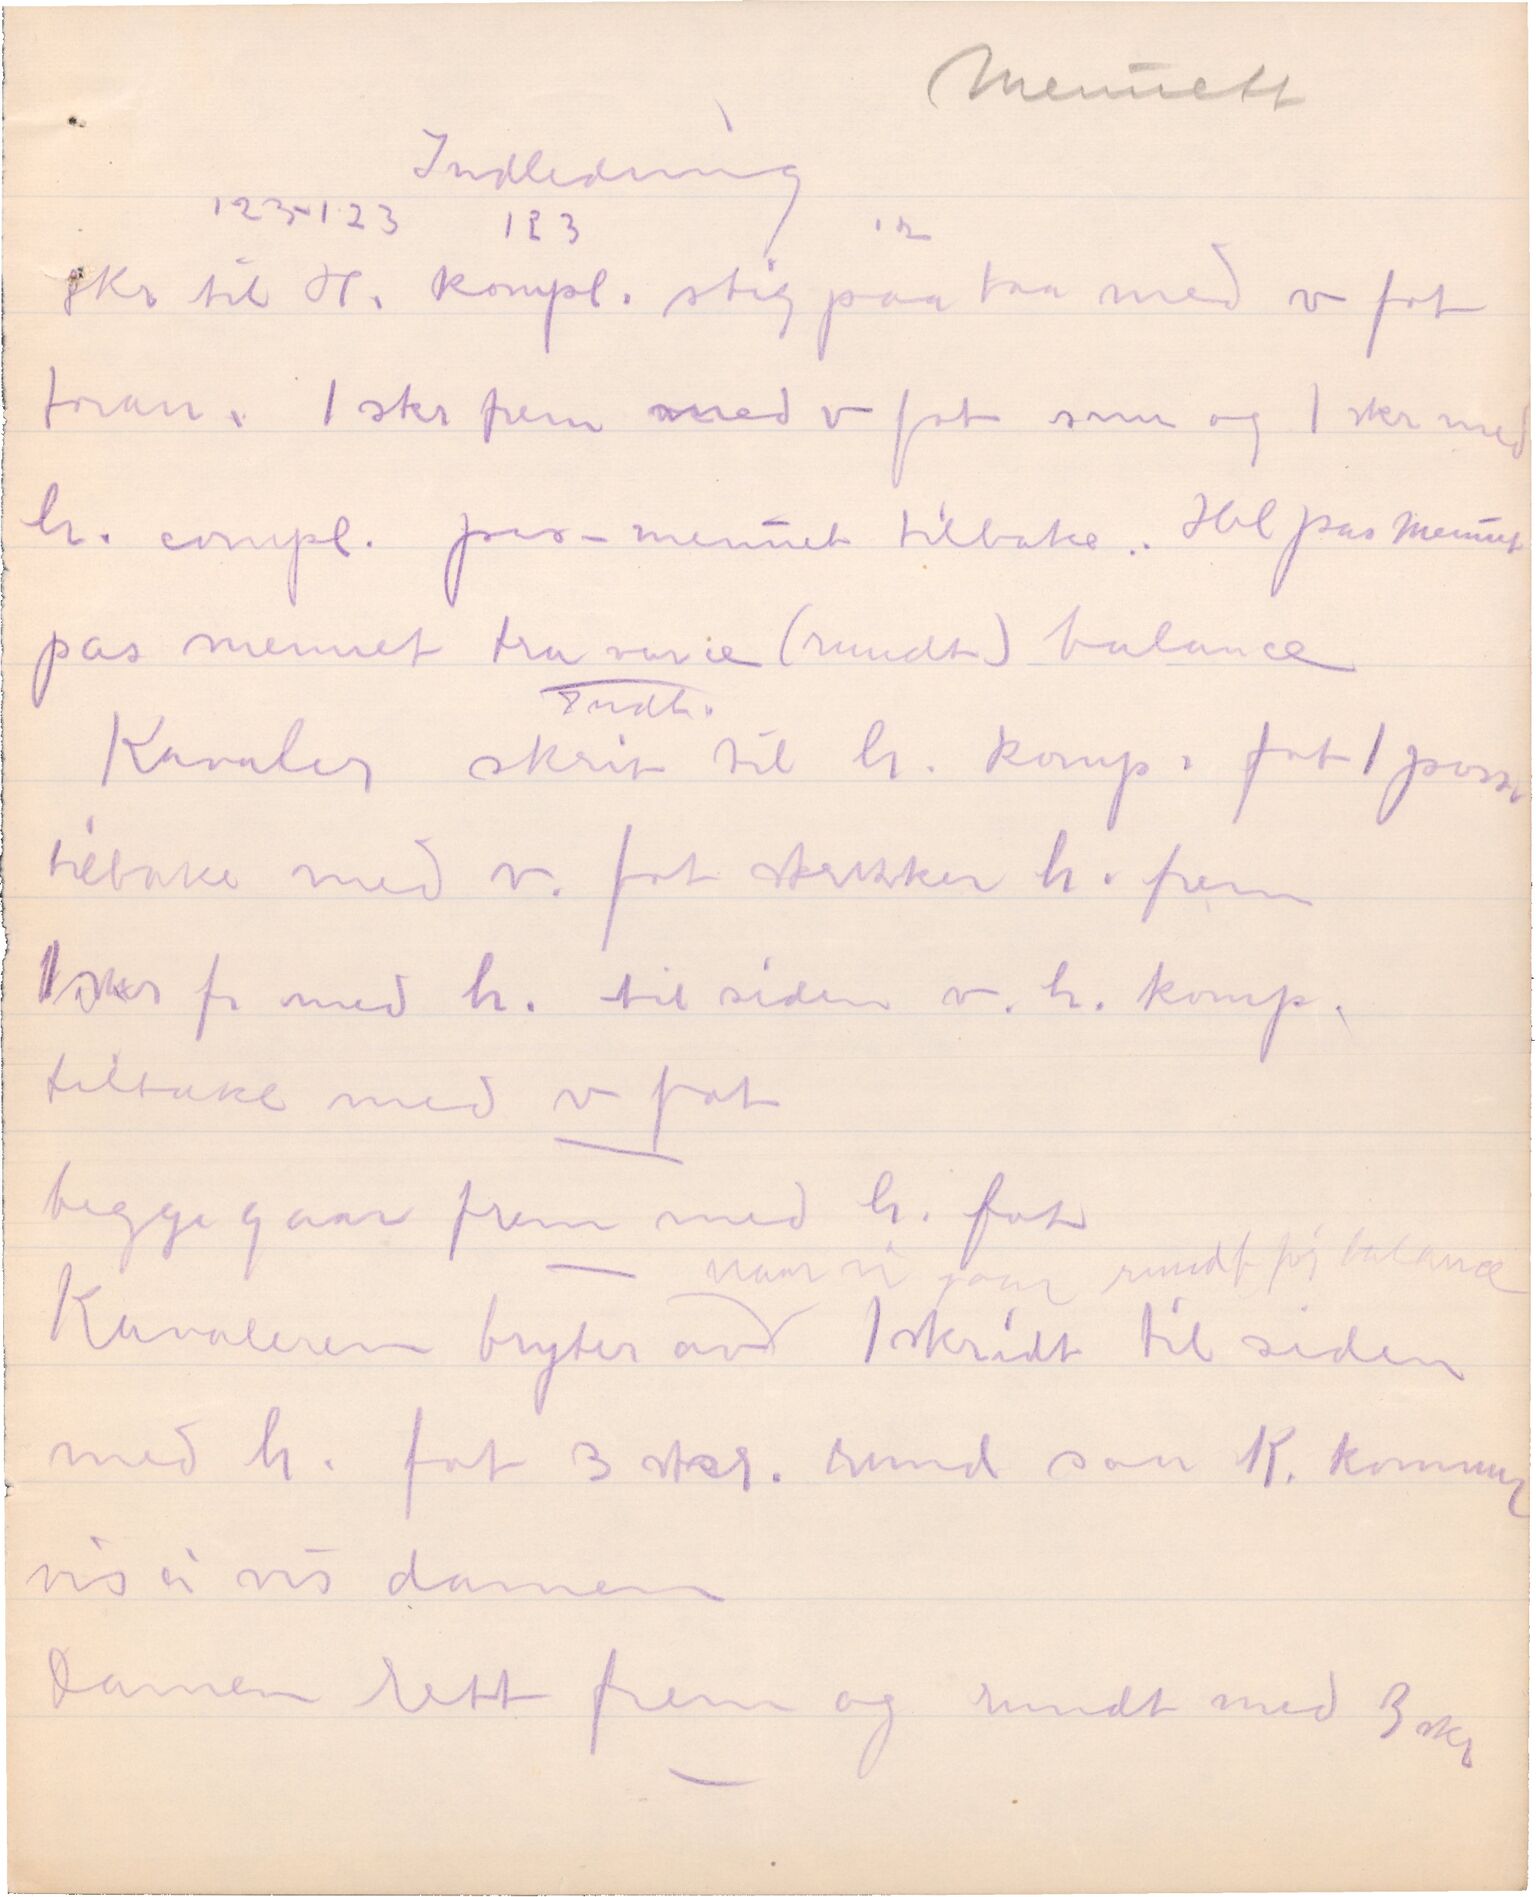 Menuett
Indledning
123-123 123 12
skr til H. kompl. stig paa taa med v fot
foran. 1 skr frem med v fot snu og 1 skr med
h. compl. pas-menuet tilbake.. Hel pas Menuet
pas menuet travarie (rundt) balance
Kavaler skrit til h. komp. fot 1 pas
tilbake med v. fot strekker h. frem
1 skr fr med h. til siden v. h. komp.
tilbake med v fot
begge gaar frem med h. fot
naar vi gaar rundt før balance
Kavaleren bryter av 1 skridt til siden
med h. fot 3 skr. rund saa K. kommer
vis a vis damen
Damen rett frem og rundt med 3 skr